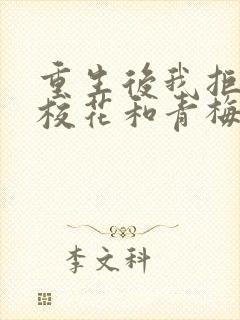 重生後我拒
校花和青梅
李文科